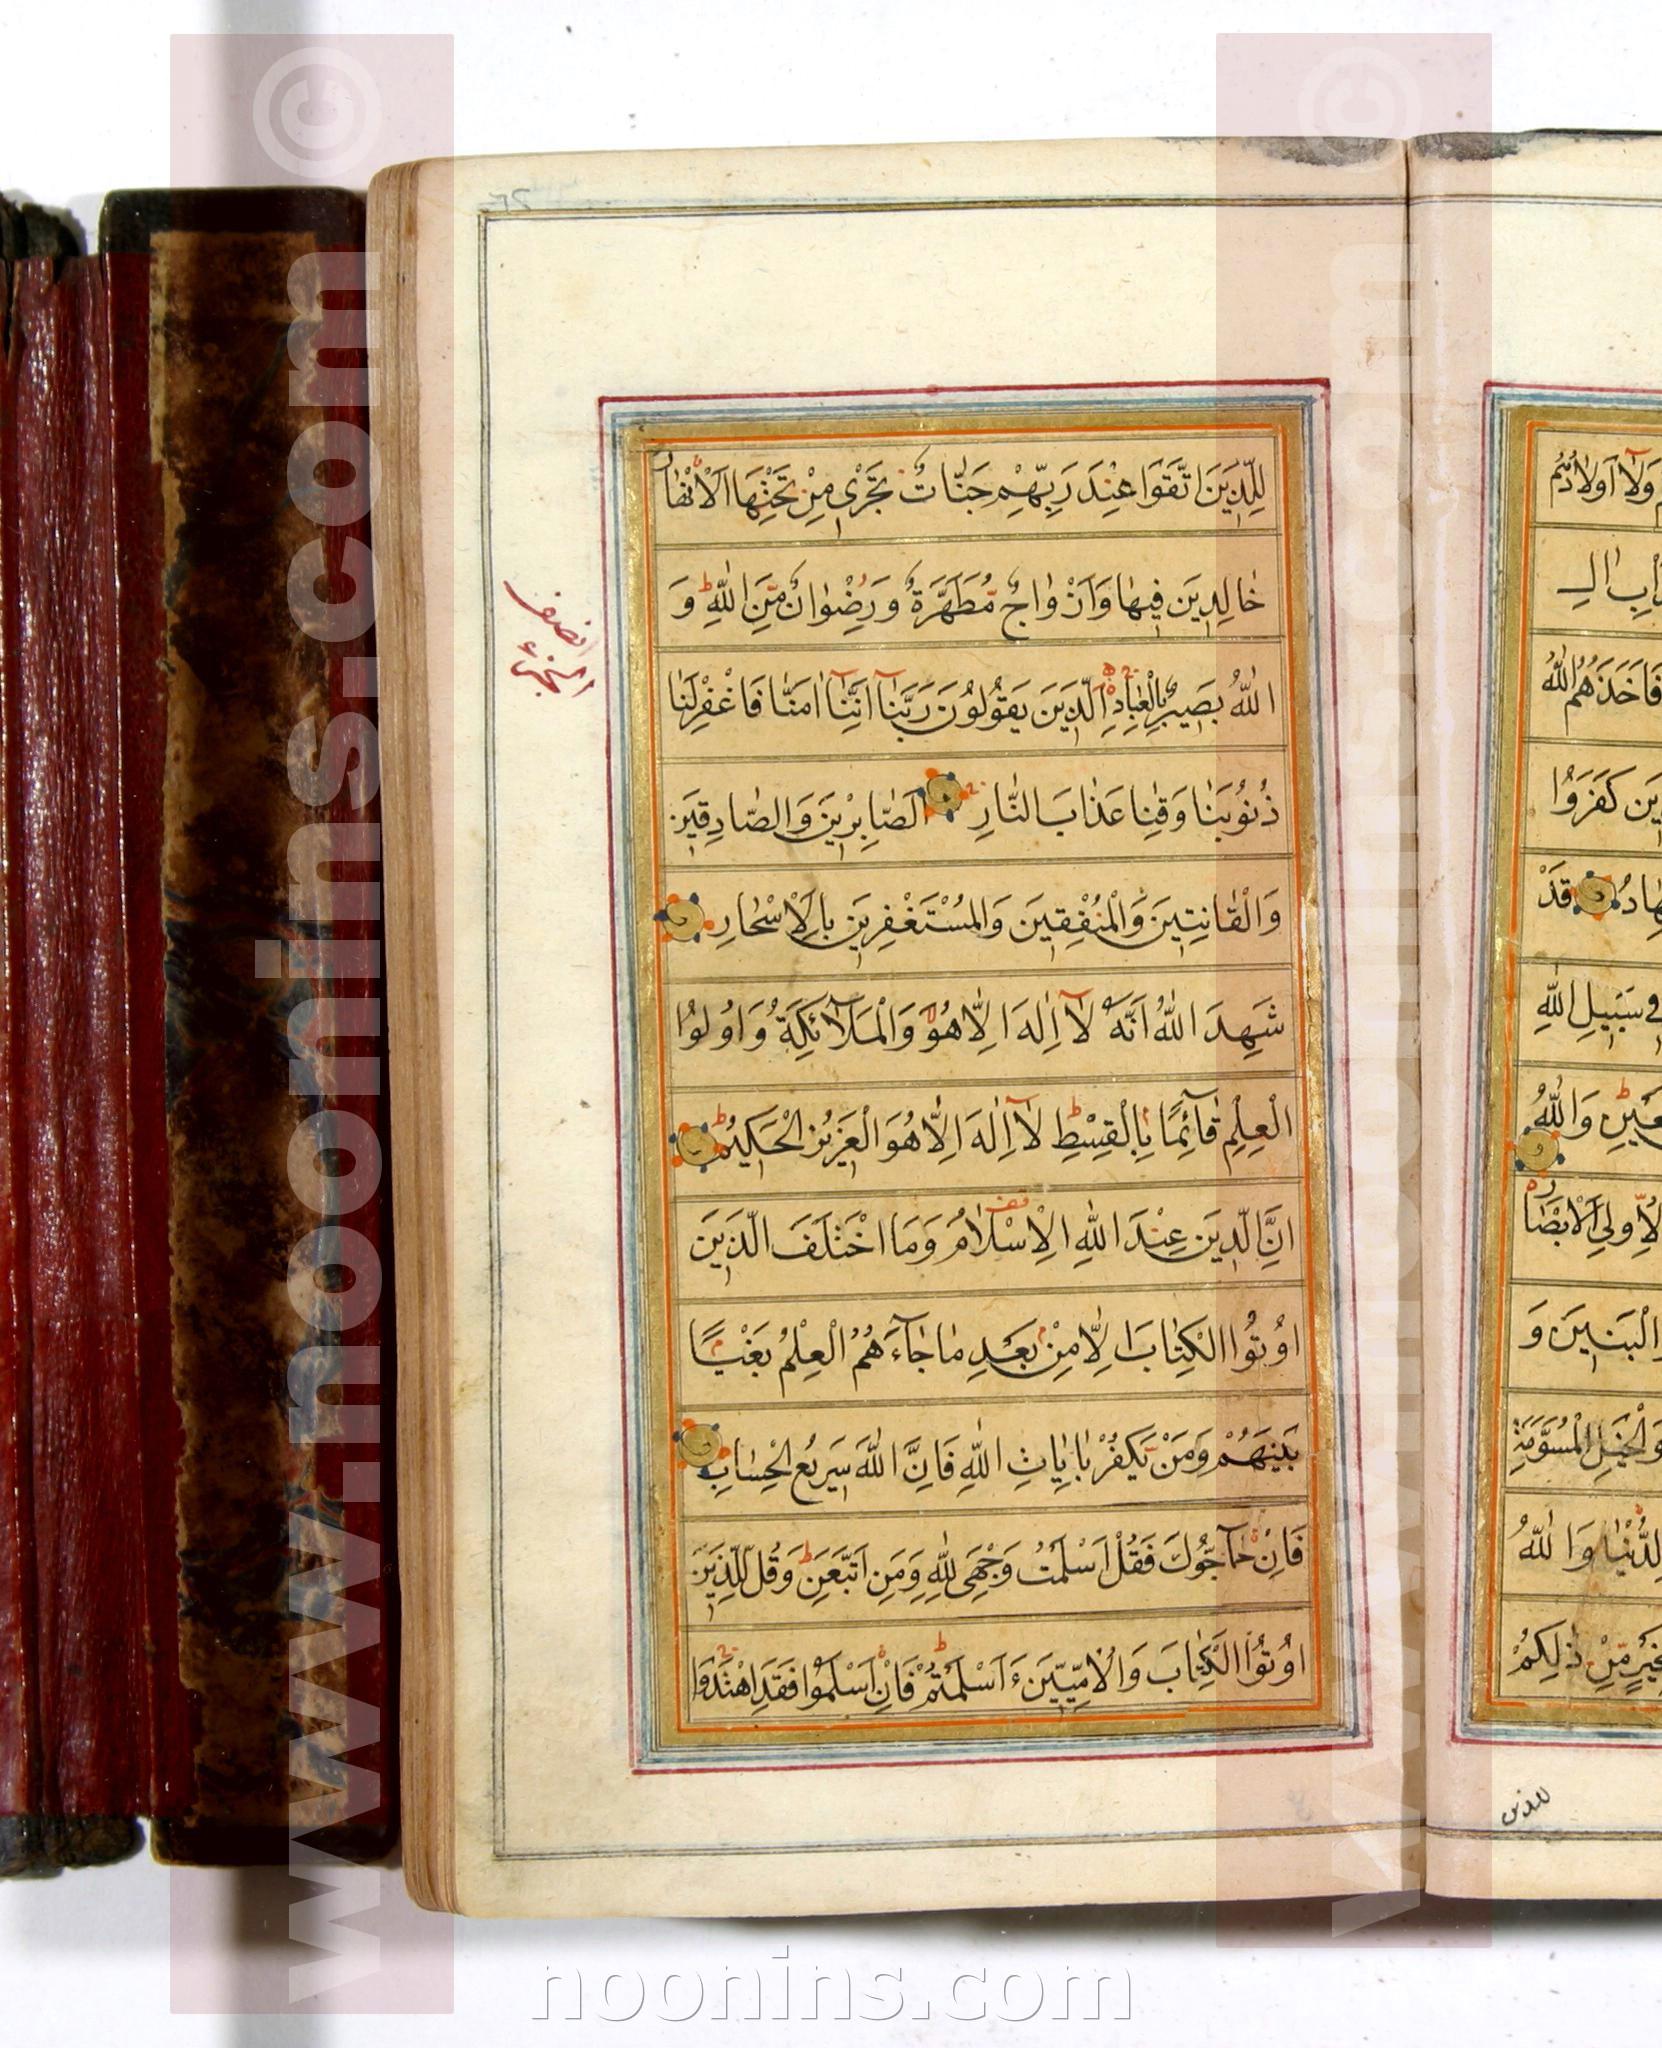 لِلَّذِينَ اتَّقَوْا عِنْدَ رَبِّهِمْ جَنَّاتٌ تَجْرِي مِنْ تَحْتِهَا الْأَنْهَارُ
خَالِدِينَ فِيهَا وَأَزْوَاجٌ مُطَهَّرَةٌ وَرِضْوَانٌ مِنَ اللَّهِ ط وَ
اللَّهُ بَصِيرٌ بِالْعِبَادِ الَّذِينَ يَقُولُونَ رَبَّنَا إِنَّنَا آمَنَّا فَاغْفِرْ لَنَا
ذُنُوبَنَا وَقِنَا عَذَابَ النَّارِ الصَّابِرِينَ وَالصَّادِقِينَ
وَالْقَانِتِينَ وَالْمُنْفِقِينَ وَالْمُسْتَغْفِرِينَ بِالْأَسْحَارِ
شَهِدَ اللَّهُ أَنَّهُ لَا إِلَهَ إِلَّا هُوَ وَالْمَلَائِكَةُ وَأُولُوا
الْعِلْمِ قَائِمًا بِالْقِسْطِ ط لَا إِلَهَ إِلَّا هُوَ الْعَزِيزُ الْحَكِيمُ ط
إِنَّ الدِّينَ عِنْدَ اللَّهِ الْإِسْلَامُ وَمَا اخْتَلَفَ الَّذِينَ
أُوتُوا الْكِتَابَ إِلَّا مِنْ بَعْدِ مَا جَاءَهُمُ الْعِلْمُ بَغْيًا
بَيْنَهُمْ وَمَنْ يَكْفُرْ بِآيَاتِ اللَّهِ فَإِنَّ اللَّهَ سَرِيعُ الْحِسَابِ
فَإِنْ حَاجُّوكَ فَقُلْ أَسْلَمْتُ وَجْهِيَ لِلَّهِ وَمَنِ اتَّبَعَنِ ط وَقُلْ لِلَّذِينَ
أُوتُوا الْكِتَابَ وَالْأُمِّيِّينَ ءَأَسْلَمْتُمْ ط فَإِنْ أَسْلَمُوا فَقَدِ اهْتَدَوْا
نصف
الجزء
وَلَا أَوْلَادُهُمْ
فَأَخَذَهُمُ اللَّهُ
كَفَرُوا
قَدْ
سَبِيلِ اللَّهِ
وَاللَّهُ
لِأُولِي الْأَبْصَارِ
الْبَنِينَ وَ
وَالْخَيْلِ الْمُسَوَّمَةِ
الدُّنْيَا وَاللَّهُ
بِخَيْرٍ مِنْ ذَلِكُمْ
للذين
www.noonins.com ©
www.noonins.com ©
noonins.com